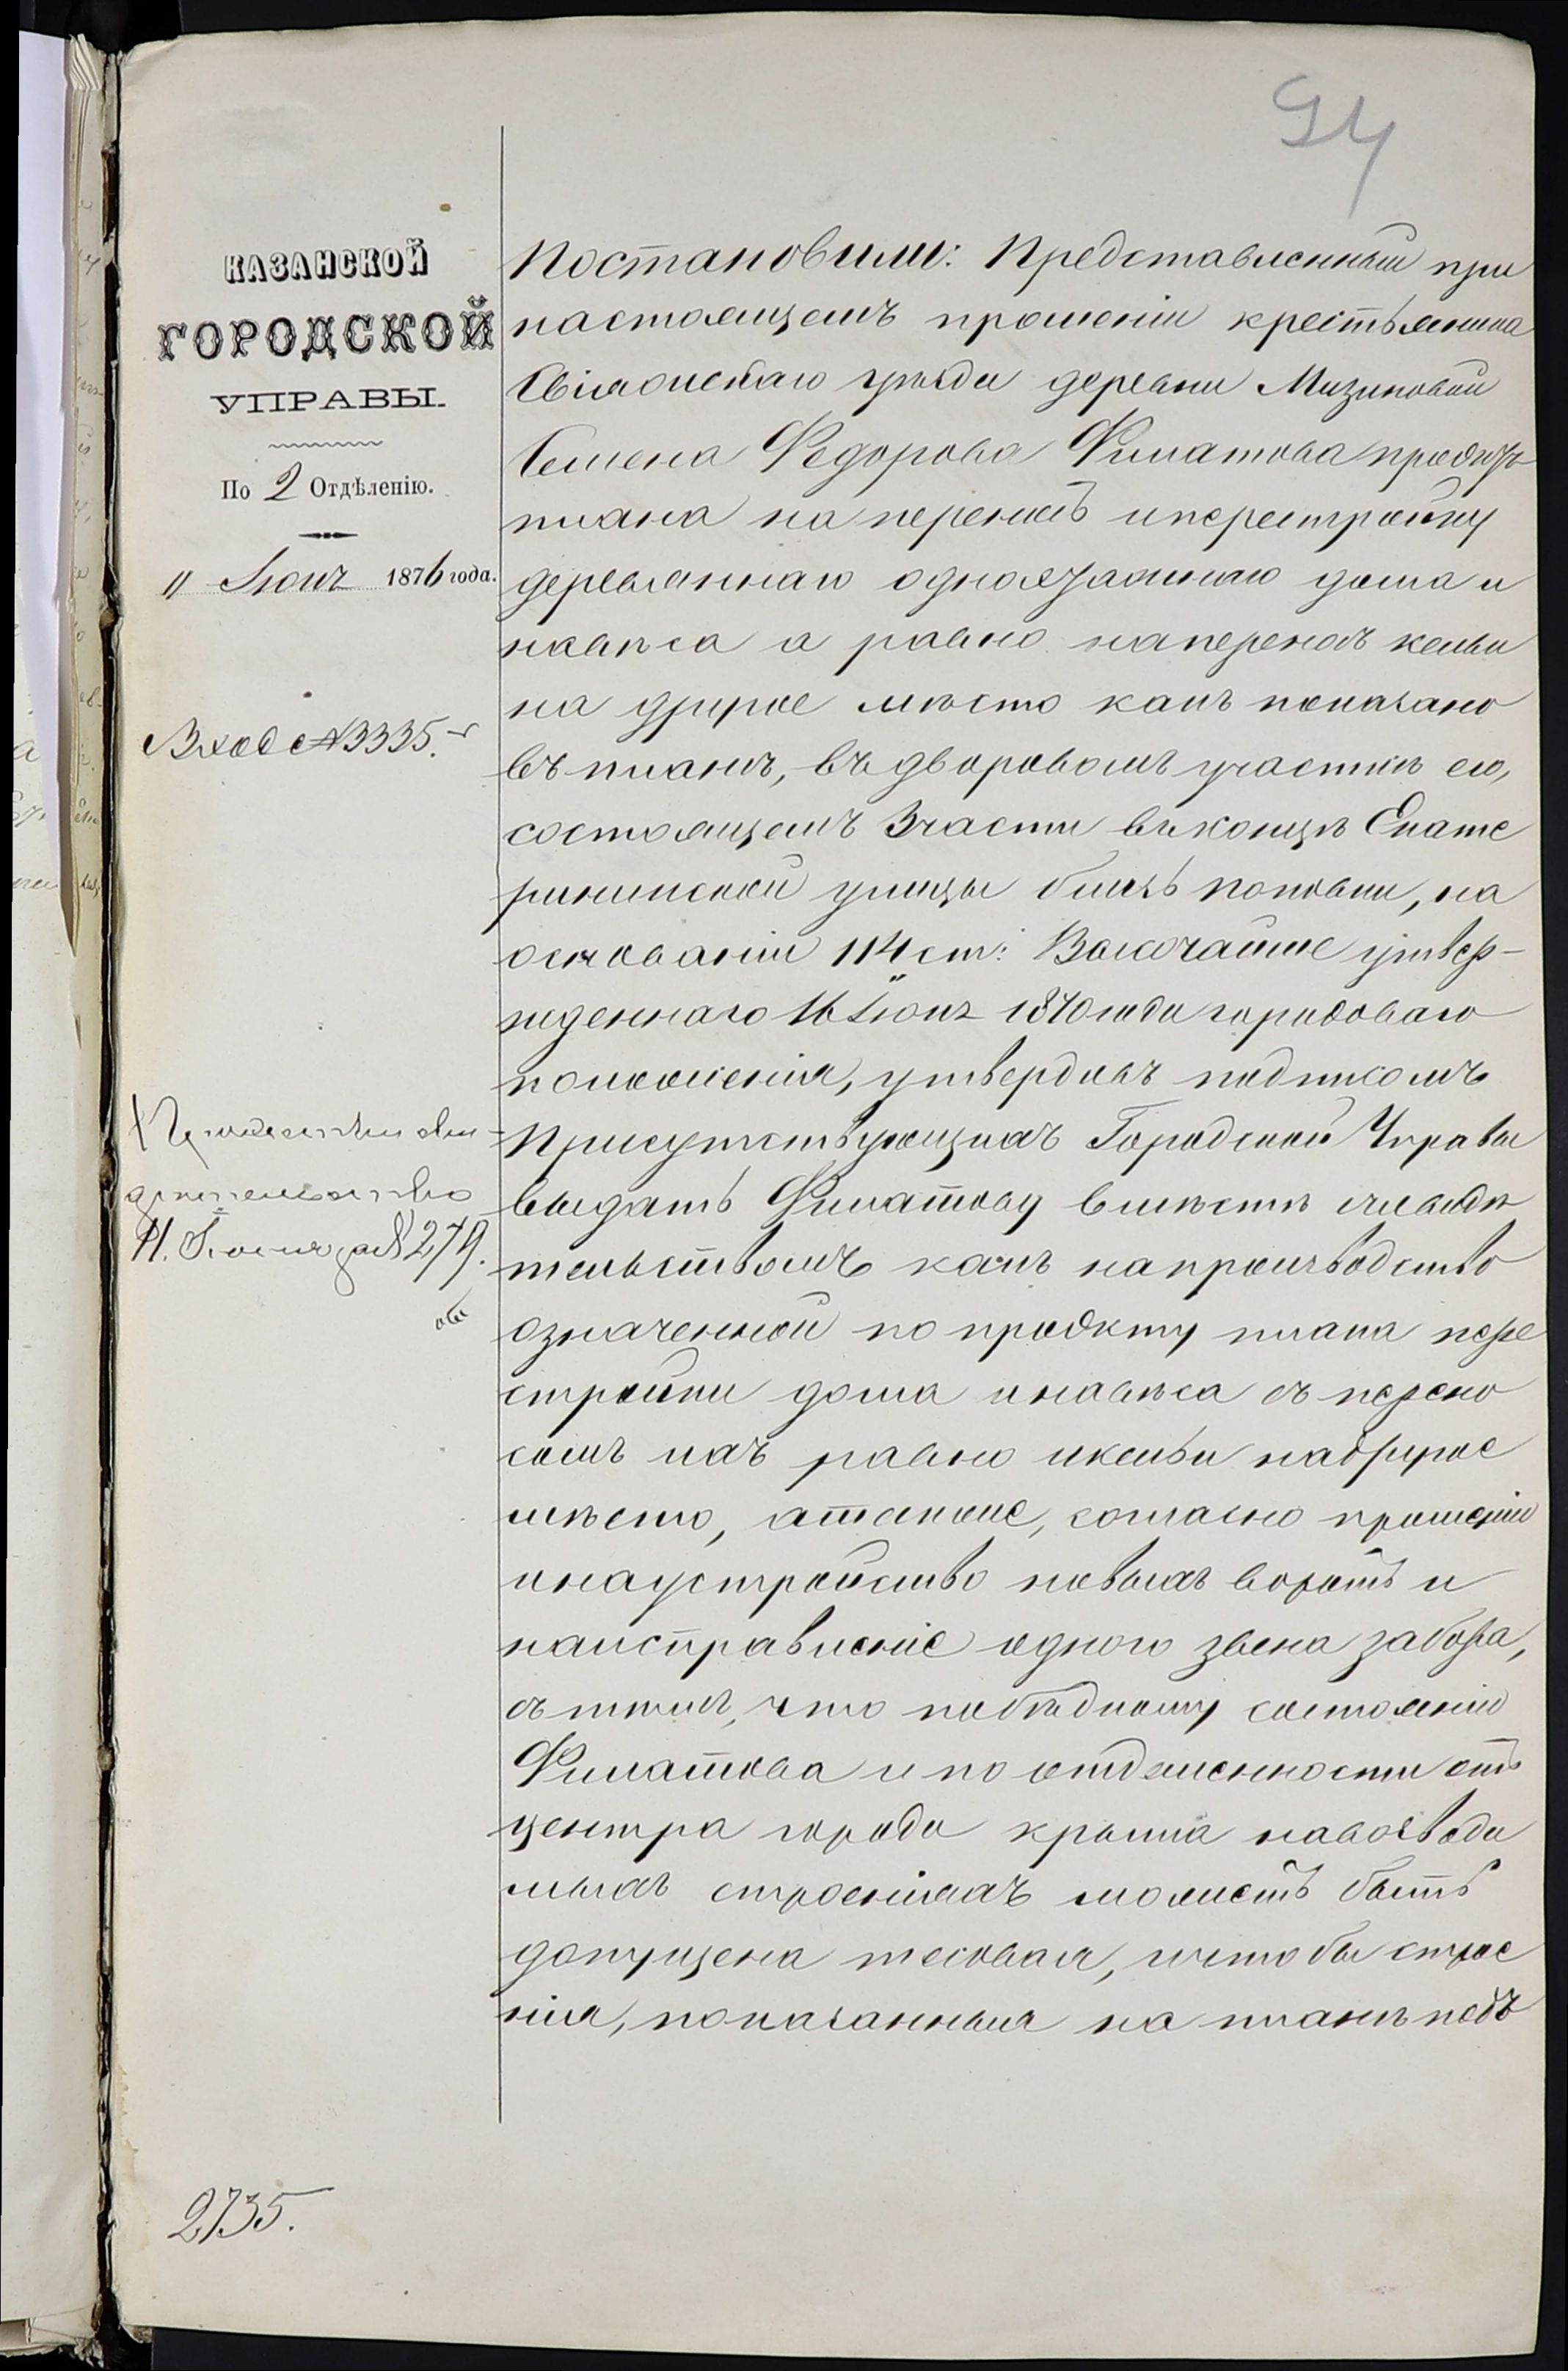 94
КАЗАНСКОЙ
ГОРОДСКОЙ
УПРАВЫ.
По 2 Отдѣленію.
" Іюнь 1876 года.
Вход №3335.
279.
2735.
Постановили: Представленный при
настоящемъ прошеніи крестьянина
Свіяжскаго уѣзда деревни Мизиновой
Семена Федорова Филатова проэктъ
плана на переносъ и перестройку
деревяннаго одноэтажнаго дома и
навѣса а равно на переносъ кельи
на другое мѣсто какъ показано
въ планѣ, въ дворовомъ участкѣ его,
состоящемъ 3 части въ концѣ Екате
рининской улицы близь, на
основаніи 114 ст: Высочайше утвер-
жденнаго 16 Іюня 1870 года городоваго
положенія, утвердивъ подписомъ
Присутствующихъ Городской Управы
выдать Филатову вмѣстѣ свидѣ
тельствомъ какъ на производство
означенной по проэкту плана пере
стройки дома и навѣса съ перено
сомъ ихъ равно и кельи на другое
мѣсто, а также, согласно прошенію
и на устройство новыхъ воротъ и
на исправленіе одного звена забора,
съ тѣмъ, что по бѣдному состоянію
Филатова и по отдаленности отъ
центра города крыша на возводи
мыхъ строеніяхъ можетъ быть
допущена тесовая, и чтобы строе
нія, показанныя на планѣ подъ